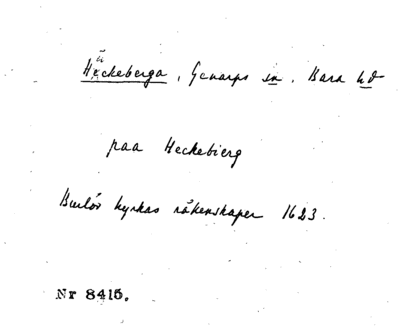 Häckeberga, Genarps sn, Bara hd
paa Heckebierg
Burlövs kyrkas räkenskaper 1623.
Nr 8415.